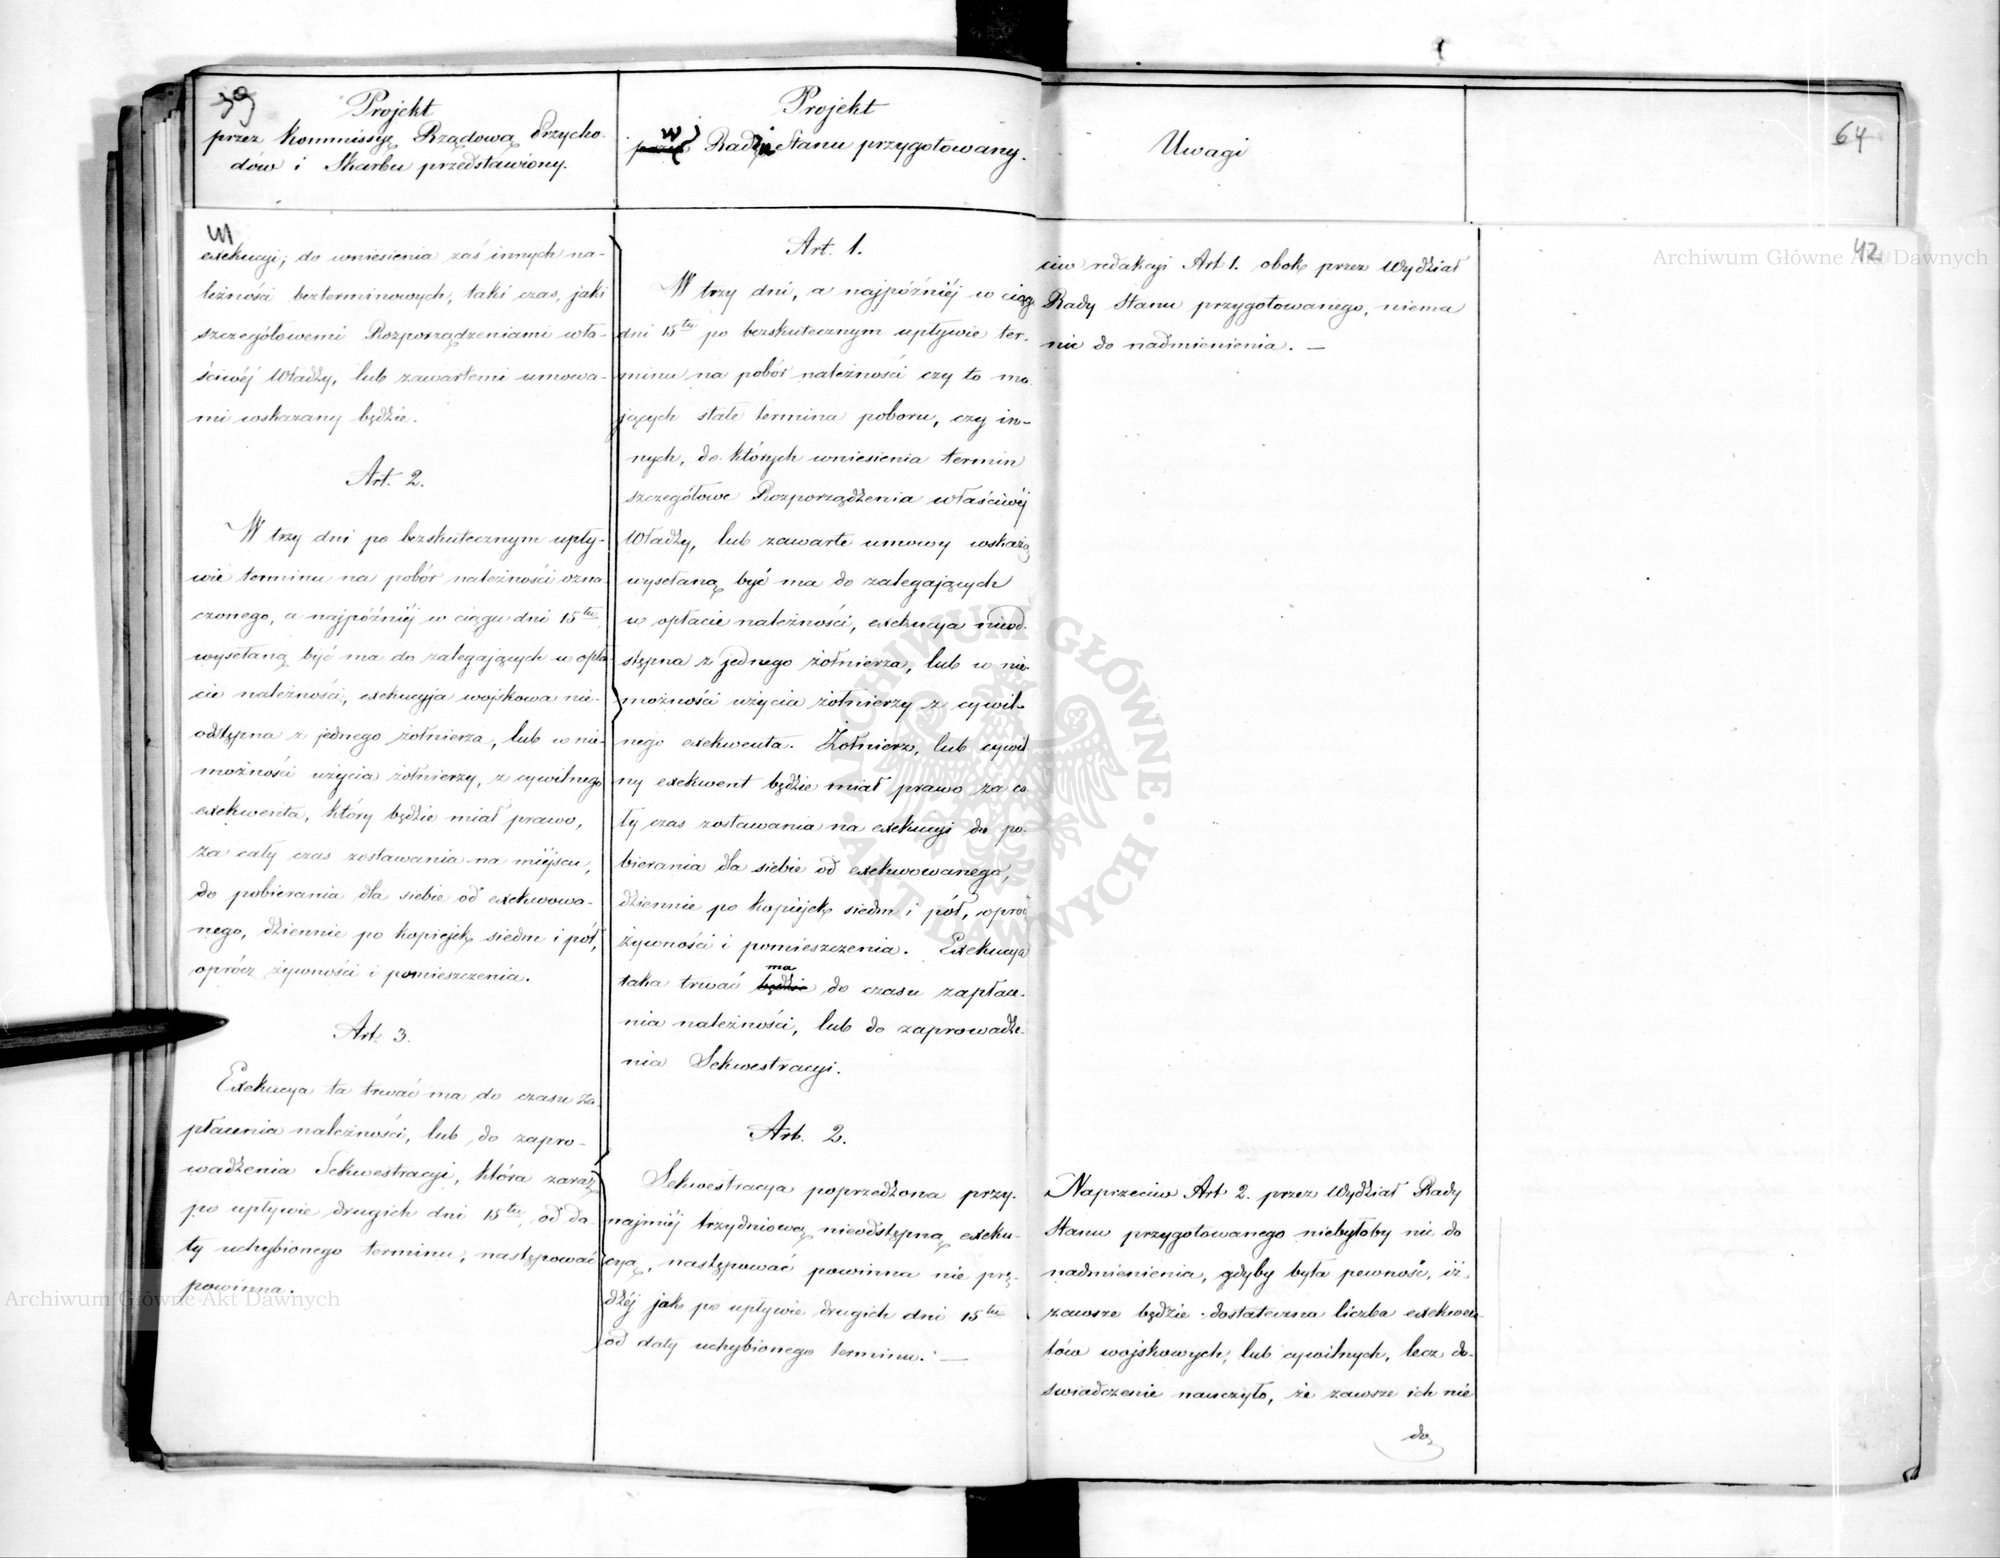 39
Projekt
przez Kommissyę Rządową Przycho-
dów i Skarbu przedstawiony.
41
exekucyi; do wniesienia zaś innych na-
leżności bezterminowych, taki czas, jaki
szczegółowemi Rozporządzeniami wła-
ściwéj Władzy, lub zawartemi umowa-
mi wskazany będzie.
Art. 2.
W trzy dni po bezskutecznym upły-
wie terminu na pobór należności ozna-
czonego, a najpóźniéj w ciągu dni 15tu
wysełaną być ma do zalegających w opła
cie należności, exekucyja wojskowa nie-
odstępna z jednego żołnierza, lub w nie-
możności użycia żołnierzy, z cywilnego
exekwenta, który będzie miał prawo,
za cały czas zostawania na miéjscu,
do pobierania dla siebie od exekwowa-
nego, dziennie po kopiejek siedm i pół,
oprócz żywności i pomieszczenia.
Art. 3.
Exekucya ta trwać ma do czasu za-
płacenia należności, lub do zapro-
wadzenia Sekwestracyi, która zaraz
po upływie drugich dni 15tu, od da-
ty uchybionego terminu, następować
powinna.
Projekt
przez w Radzie Stanu przygotowany.
Art. 1.
W trzy dni, a najpóźniéj w ciągu
dni 15tu po bezskutecznym upływie ter-
minu na pobór należności czy to ma
jących stałe termina poboru, czy in-
nych, do których wniesienia termin
szczegółowe Rozporządzenia właściwéj
Władzy, lub zawarte umowy wskażą
wysełaną być ma do zalegających
w opłacie należności, exekucya nieod-
stępna z jednego żołnierza, lub w nie-
możności użycia żołnierzy z cywil-
nego exekwenta. Żołnierz, lub cywil
ny exekwent będzie miał prawo za ca
ły czas zostawania na exekucyi do po-
bierania dla siebie od exekwowanego,
dziennie po kopiejek siedm i pół, oprócz
żywności i pomieszczenia. Exekucya
taka trwać będzie ma do czasu zapłace-
nia należności, lub do zaprowadze-
nia Sekwestracyi.
Art. 2.
Sekwestracya poprzedzona przy-
najmiéj trzydniową nieodstępną exeku-
cyą, następować powinna nie prę-
dzéj jak po upływie drugich dni 15tu
od daty uchybionego terminu. —
Uwagi
64
42
ciw redakcyi Art 1. obok przez Wydział
Rady Stanu przygotowanego, niema
nic do nadmienienia. —
Naprzeciw Art 2. przez Wydział Rady
Stanu przygotowanego niebyłoby nic do
nadmienienia, gdyby była pewność, iż
zawsze będzie dostateczna liczba exekwen-
tów wojskowych, lub cywilnych, lecz do-
świadczenie nauczyło, że zawsze ich nie
do
Archiwum Główne Akt Dawnych
Archiwum Główne Akt Dawnych
ARCHIWUM GŁÓWNE AKT DAWNYCH